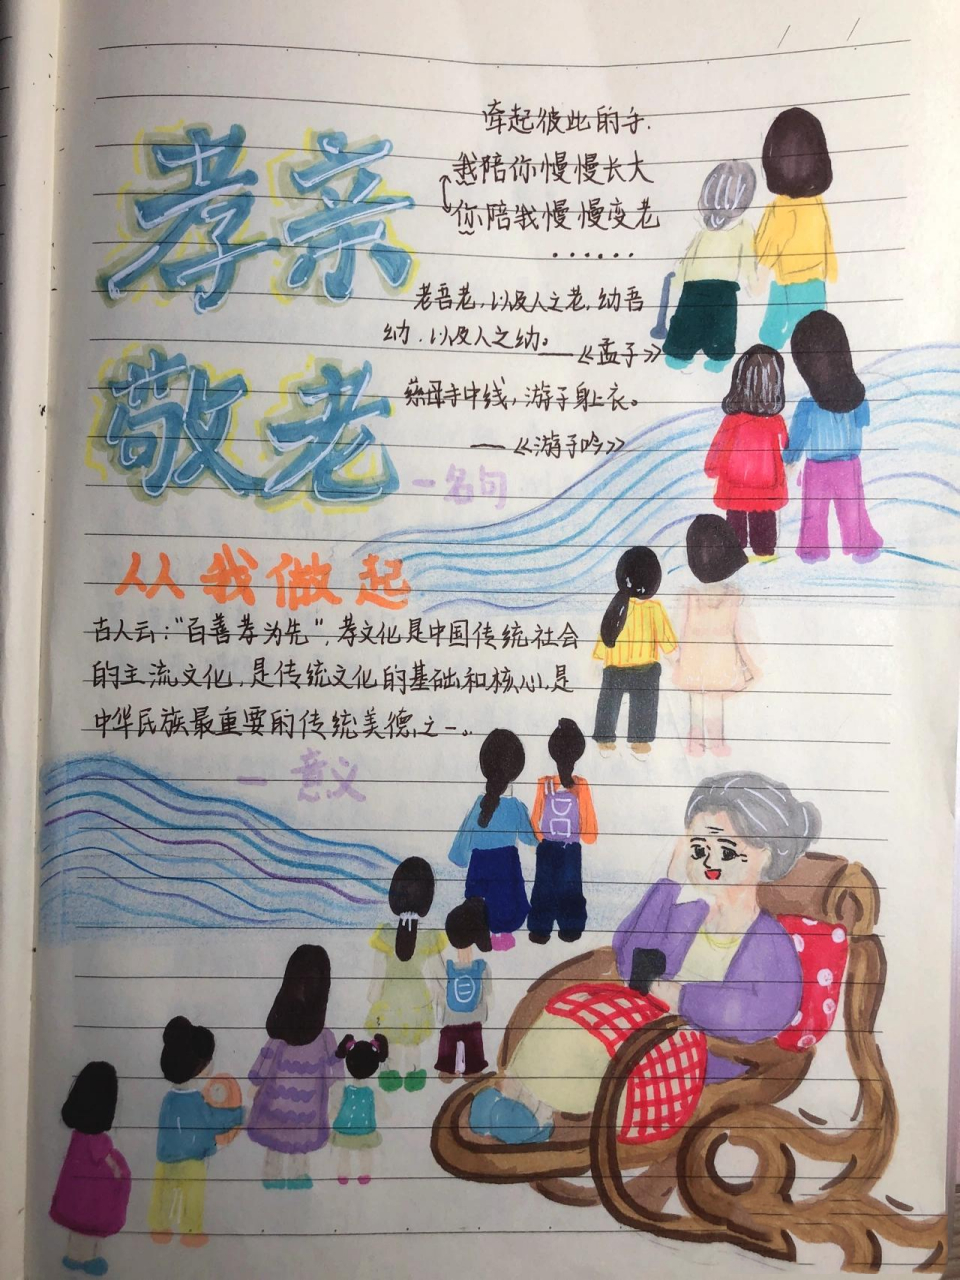 孝亲
敬老
牵起彼此的手.
我陪你慢慢长大
你陪我慢慢变老
......
老吾老,以及人之老,幼吾
幼,以及人之幼。
——《孟子》
慈母手中线,游子身上衣。
——《游子吟》
一名句
从我做起
古人云:"百善孝为先",孝文化是中国传统社会
的主流文化,是传统文化的基础和核心,是
中华民族最重要的传统美德之一。
一意义